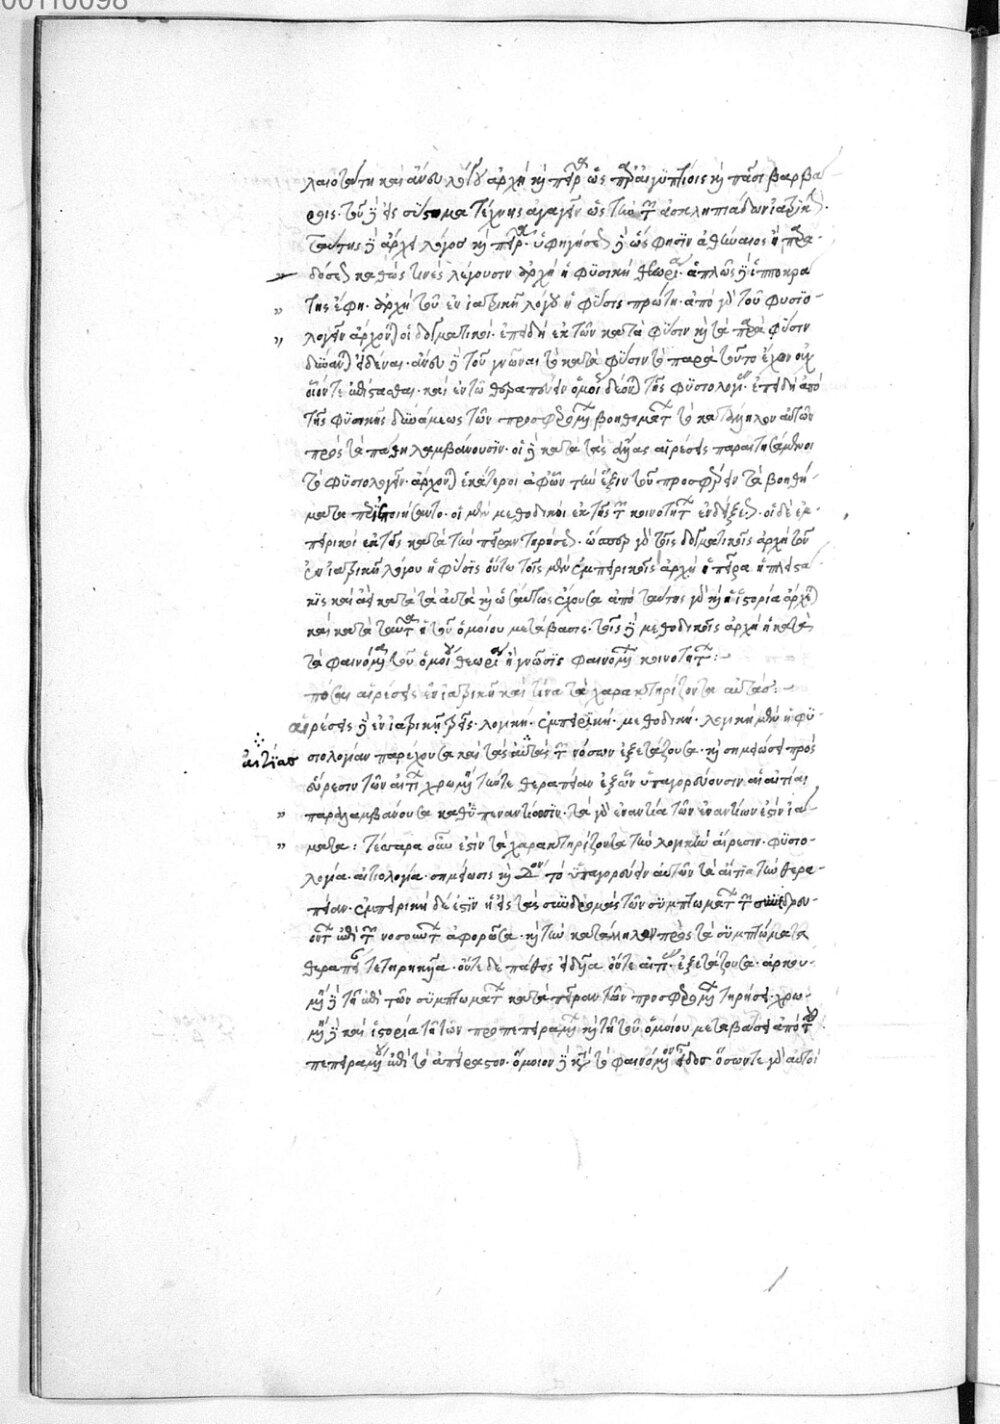 00110098
λαιοτάτη καὶ ἄνευ λόγου ἀρχὴ καὶ πεῖρα ὡς παρ' αἰγυπτίοις καὶ πᾶσι βαρβά-
ροις. τοῦ δὲ εἰς σύστημα τέχνης ἀγαγεῖν ὡς τὴν τῶν ἀσκληπιαδῶν ἰατρικὴν.
ταύτης δὲ ἀρχὴ λόγος καὶ πεῖρα. ὑφηγήσεως δὲ ὥς φησιν ἀθηναῖος ἢ παρα-
δόσεως καθώς τινες λέγουσιν ἀρχὴ ἡ φυσικὴ θεωρία. ἁπλῶς δὲ ἱπποκρά
της ἔφη. ἀρχὴ τοῦ ἐν ἰατρικῇ λόγου ἡ φύσις πρώτη. ἀπὸ γὰρ τοῦ φυσιο-
λογεῖν ἄρχονται οἱ δογματικοί. ἐπειδὴ ἐκ τῶν κατὰ φύσιν καὶ τὰ παρὰ φύσιν
δύναται εἰδέναι. ἄνευ δὲ τοῦ γνῶναι τὸ κατὰ φύσιν τὸ παρὰ τοῦτο ἔχον οὐχ
οἷόν τε ἐπίστασθαι. καὶ ἐν τῷ θεραπεύειν ὁμοίως δέονται τῆς φυσιολογίας. ἐπειδὴ ἀπὸ
τῆς φυσικῆς δυνάμεως τῶν προσφερομένων βοηθημάτων τὸ κατάλληλον αὐτῶν
πρὸς τὰ πάθη λαμβάνουσιν. οἱ δὲ κατὰ τὰς ἄλλας αἱρέσεις παραιτησάμενοι
τὸ φυσιολογεῖν. ἄρχονται ἑκάτεροι ἀφ' ὧν τὴν ἕξιν τοῦ προσφέρειν τὰ βοηθή-
ματα περιεποιήσαντο. οἱ μὲν μεθοδικοὶ ἐκ τῆς τῶν κοινοτήτων ἐνδείξεως. οἱ δὲ ἐμ-
πειρικοὶ ἐκ τῆς κατὰ τὴν πεῖραν τηρήσεως. ὥσπερ γὰρ τοῖς δογματικοῖς ἀρχὴ τοῦ
ἐν ἰατρικῇ λόγου ἡ φύσις οὕτω τοῖς μὲν ἐμπειρικοῖς ἀρχὴ ἡ πεῖρα ἡ πλειστά
κις καὶ ἀεὶ κατὰ τὰ αὐτὰ καὶ ὡσαύτως ἔχουσα ἀπὸ ταύτης γὰρ καὶ ἡ ἱστορία ἄρχεται
καὶ κατὰ ταῦτα ἡ τοῦ ὁμοίου μετάβασις. τοῖς δὲ μεθοδικοῖς ἀρχὴ ἡ κατὰ
τὰ φαινόμενα τοῦ ὁμοίου θεωρία ἢ γνῶσις φαινομένων κοινοτήτων:-
πόσαι αἱρέσεις ἐν ἰατρικῇ καὶ τίνα τὰ χαρακτηρίζοντα αὐτάς:-
αἱρέσεις δὲ ἐν ἰατρικῇ τρεῖς. λογική. ἐμπειρική. μεθοδική. λογικὴ μὲν ἡ φυ-
αἰτίας
σιολογίαν παρέχουσα καὶ τὰς αὐτὰς τῶν νόσων ἐξετάζουσα. καὶ σημειώσει πρὸς
εὕρεσιν τῶν αἰτιῶν χρωμένη τήν τε θεραπείαν ἐξ ὧν ὑπαγορεύουσιν αἱ αἰτίαι
παραλαμβάνουσα καθ' ὑπεναντίωσιν. τὰ γὰρ ἐναντία τῶν ἐναντίων ἐστὶν ἰά
ματα: τέσσαρα οὖν ἐστὶν τὰ χαρακτηρίζοντα τὴν λογικὴν αἵρεσιν. φυσιο-
λογία. αἰτιολογία. σημείωσις καὶ Δον τὸ ὑπαγορεύειν αὐτῶν τὰ αἴτια τὴν θερα-
πείαν. ἐμπειρικὴ δέ ἐστιν ἡ εἰς τὰς συνδρομὰς τῶν συμπτωμάτων τῶν συνεδρευ-
όντων ἐπὶ τῶν νοσούντων ἀφορῶσα. καὶ τὴν κατάλληλον πρὸς τὰ συμπτώματα
θεραπείαν τετηρηκυῖα. οὔτε δὲ πάθος εἰδυῖα οὔτε αἰτίαν ἐξετάζουσα. ἀρκου-
μένη δὲ τῇ ἐπὶ τῶν συμπτωμάτων κατὰ πεῖραν τῶν προσφερομένων τηρήσει. χρω-
μένη δὲ καὶ ἱστορίᾳ τῇ τῶν προπεπειραμένων καὶ τῇ τοῦ ὁμοίου μεταβάσει ἀπὸ τοῦ
πεπειραμένου ἐπὶ τὸ ἀπείραστον. ὅμοιον δὲ κατὰ τὸ φαινόμενον εἶδος ὅσων τε γὰρ αὐτοὶ